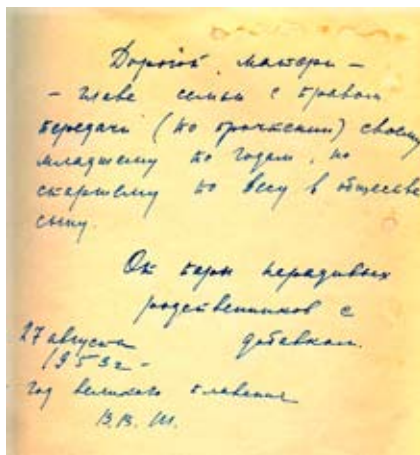 Дорогой матери –
– главе семьи с правом
передачи (по прочтении) своему
младшему по годам, но
старшему по весу в обществе
сыну.
От пары нерадивых
родственников с
добавком.
27 августа
1953 г –
год великого плавения
В.В. Ш.